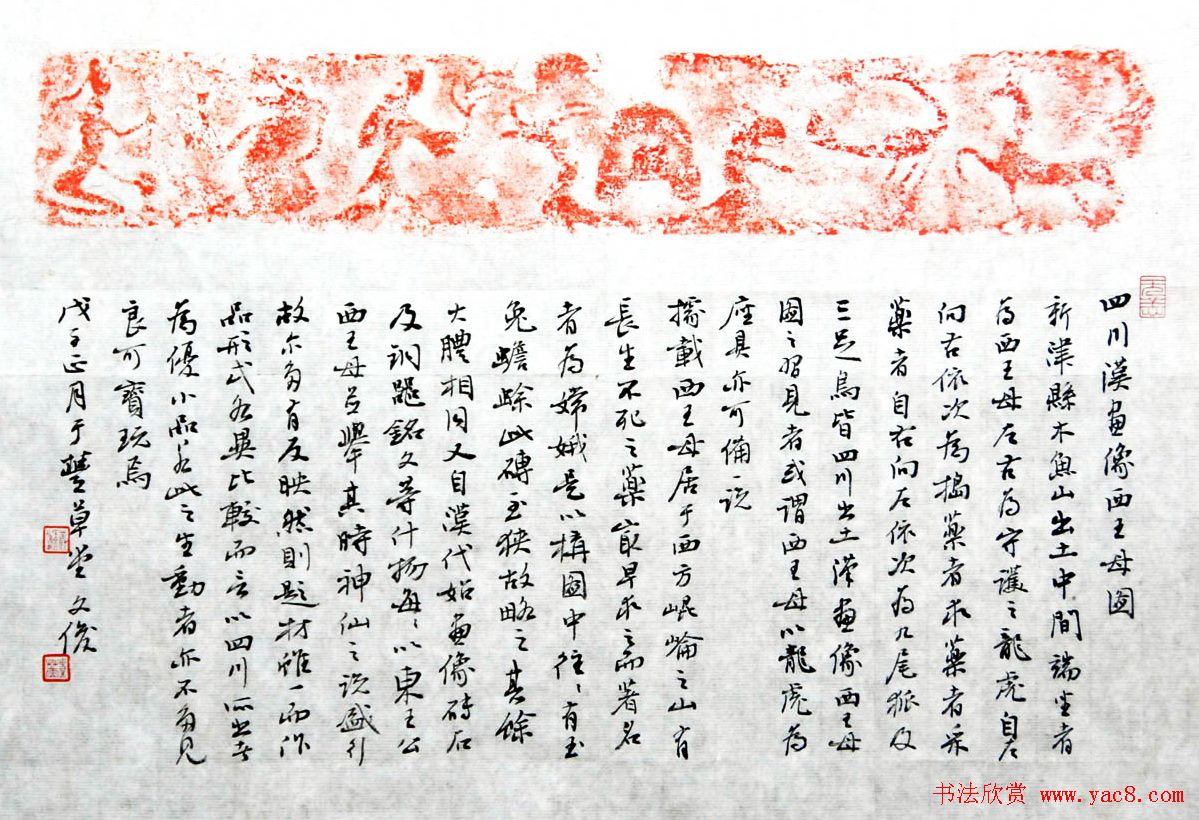 四川漢畫像西王母圖
新津縣木魚山出土中間端坐者
為西王母左右為守護之龍虎自左
向右依次為搗藥者求藥者采
藥者自右向左依次為九尾狐及
三足烏皆四川出土漢畫像西王母
圖之習見者或謂西王母以龍虎為
座具亦可備一說
據載西王母居于西方崐崘之山有
長生不死之藥最早求之而著名
者為嫦娥是以構圖中往往有玉
兔蟾蜍此磚至狹故略之其餘
大體相同又自漢代始畫像磚石
及銅器銘文等什物每每以東王公
西王母並舉其時神仙之說盛行
故亦多有反映然則題材雖一而作
品形式各異比較而言以四川所出者
為優小品若此之生動者亦不多見
良可寶玩焉
戊子正月于豐草堂文俊
书法欣赏 www.yac8.com